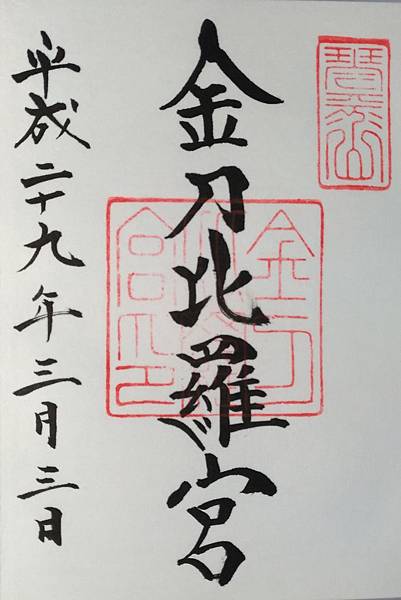 琴平山
金刀比羅宮
金刀
比羅
宮印
平成二十九年三月三日